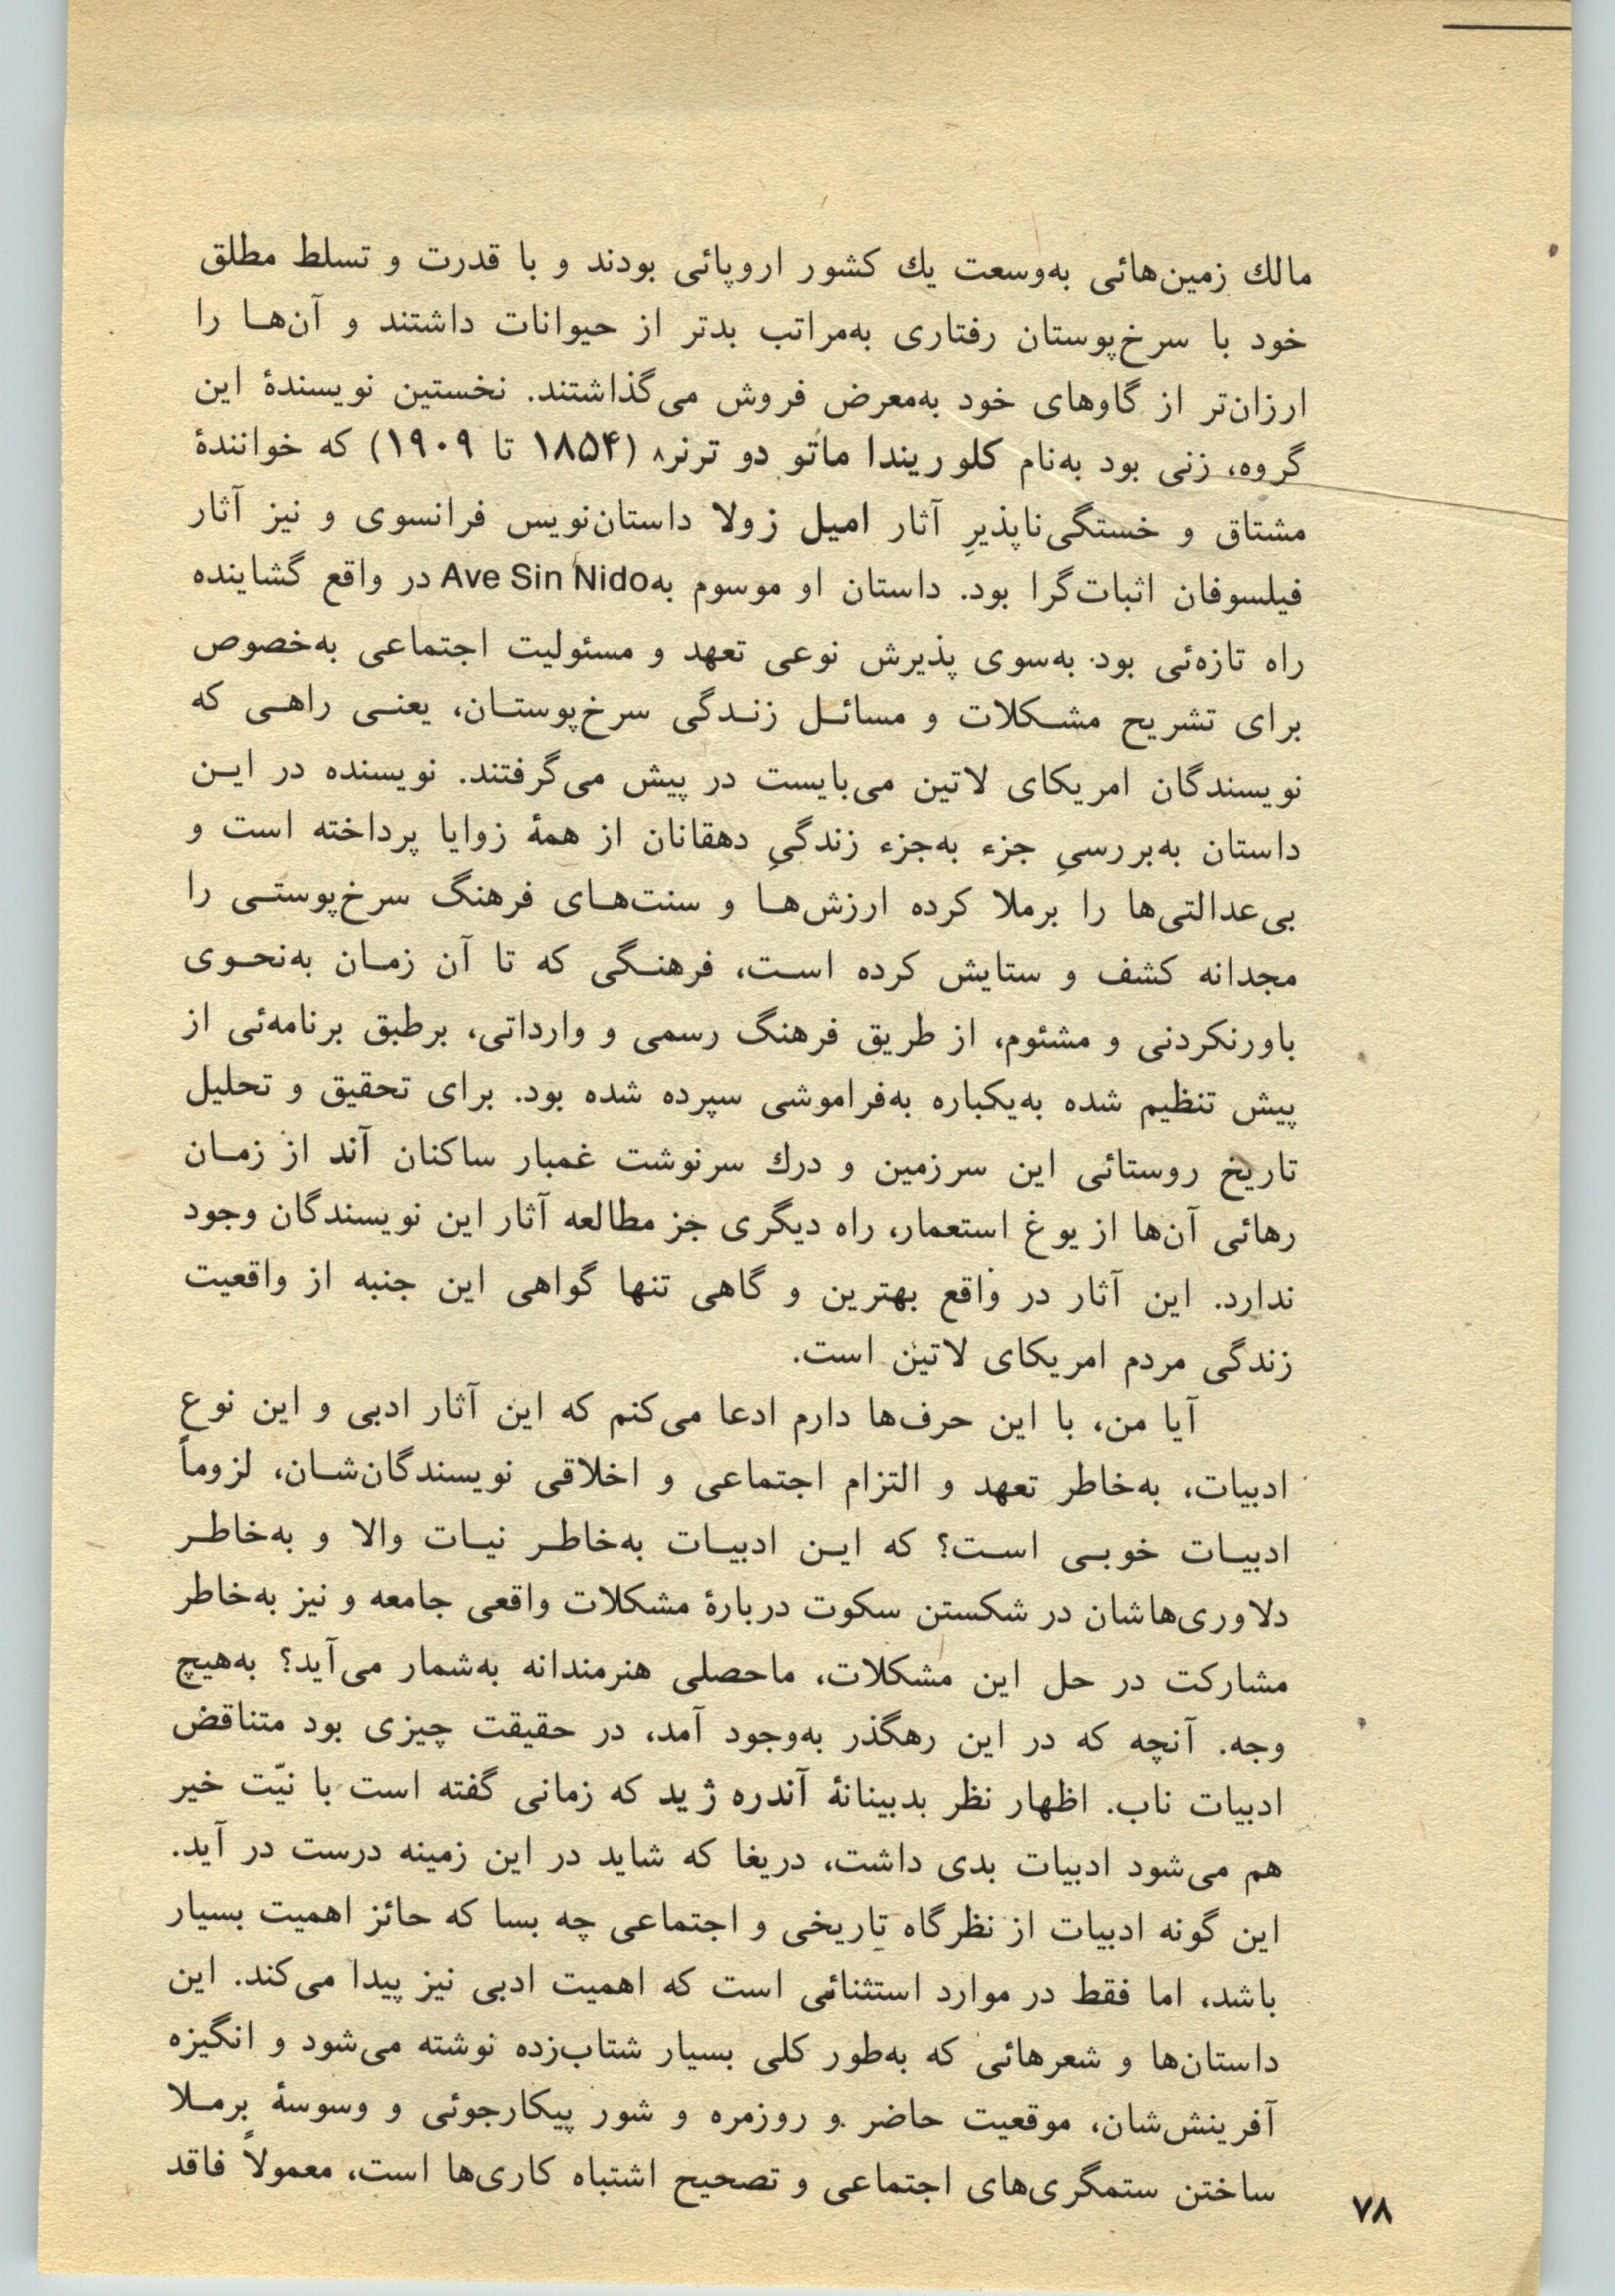 مالك زمین‌هائی به‌وسعت يك کشور اروپائی بودند و با قدرت و تسلط مطلق
خود با سرخ‌پوستان رفتاری به‌مراتب بدتر از حیوانات داشتند و آن‌هـا را
ارزان‌تر از گاوهای خود به‌معرض فروش می‌گذاشتند. نخستین نویسندهٔ این
گروه، زنی بود به‌نام کلوریندا ماتو دو ترنر۸ (۱۸۵۴ تا ۱۹۰۹) که خوانندهٔ
مشتاق و خستگی‌ناپذیرِ آثار امیل زولا داستان‌نویس فرانسوی و نیز آثار
فیلسوفان اثبات‌گرا بود. داستان او موسوم به Ave Sin Nido در واقع گشاینده
راه تازه‌ئی بود به‌سوی پذیرش نوعی تعهد و مسئولیت اجتماعی به‌خصوص
برای تشریح مشـکلات و مسائـل زنـدگی سرخ‌پوستـان، یعنـی راهـی که
نویسندگان امریکای لاتین می‌بایست در پیش می‌گرفتند. نویسنده در ایـن
داستان به‌بررسیِ جزء به‌جزء زندگیِ دهقانان از همهٔ زوایا پرداخته است و
بی‌عدالتی‌ها را برملا کرده ارزش‌هـا و سنت‌هـای فرهنگ سرخ‌پوستـی را
مجدانه کشف و ستایش کرده اسـت، فرهنـگی که تا آن زمـان به‌نحـوی
باورنکردنی و مشئوم، از طریق فرهنگ رسمی و وارداتی، برطبق برنامه‌ئی از
پیش تنظیم شده به‌یکباره به‌فراموشی سپرده شده بود. برای تحقیق و تحلیل
تاریخ روستائی این سرزمین و درك سرنوشت غمبار ساکنان آند از زمـان
رهائی آن‌ها از یوغ استعمار، راه دیگری جز مطالعه آثار این نویسندگان وجود
ندارد. این آثار در واقع بهترین و گاهی تنها گواهی این جنبه از واقعیت
زندگی مردم امریکای لاتین است.
آیا من، با این حرف‌ها دارم ادعا می‌کنم که این آثار ادبی و این نوع
ادبیات، به‌خاطر تعهد و التزام اجتماعی و اخلاقی نویسندگان‌شـان، لزوماً
ادبیـات خوبـی اسـت؟ که ایـن ادبیـات به‌خاطـر نیـات والا و به‌خاطـر
دلاوری‌هاشان در شکستن سکوت دربارهٔ مشکلات واقعی جامعه و نیز به‌خاطر
مشارکت در حل این مشکلات، ماحصلی هنرمندانه به‌شمار می‌آید؟ به‌هیچ
وجه. آنچه که در این رهگذر به‌وجود آمد، در حقیقت چیزی بود متناقض
ادبیات ناب. اظهار نظر بدبینانهٔ آندره ژید که زمانی گفته است با نیّت خیر
هم می‌شود ادبیات بدی داشت، دریغا که شاید در این زمینه درست در آید.
این گونه ادبیات از نظرگاه تاریخی و اجتماعی چه بسا که حائز اهمیت بسیار
باشد، اما فقط در موارد استثنائی است که اهمیت ادبی نیز پیدا می‌کند. این
داستان‌ها و شعرهائی که به‌طور کلی بسیار شتاب‌زده نوشته می‌شود و انگیزه
آفرینش‌شان، موقعیت حاضر و روزمره و شور پیکارجوئی و وسوسهٔ برمـلا
ساختن ستمگری‌های اجتماعی و تصحیح اشتباه کاری‌ها است، معمولاً فاقد
۷۸